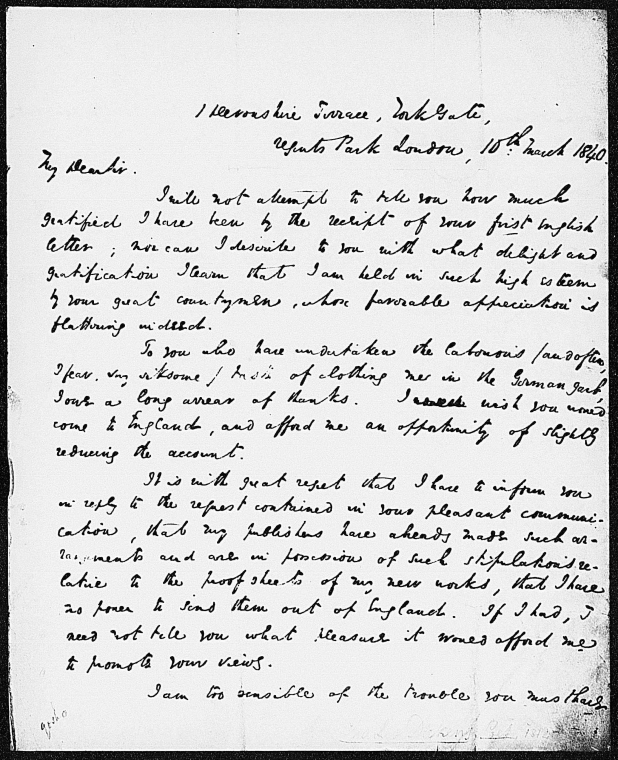 1 Devonshire Terrace, York Gate,
Regents Park London, 10th. March 1840.
My Dear Sir.
I will not attempt to tell you how much
gratified I have been by the receipt of your first English
letter; nor can I describe to you with what delight and
gratification I learn that I am held in such high esteem
by your great countrymen, whose favorable appreciation is
flattering indeed.
To you who have undertaken the laborious (and often,
I fear, very irksome) task of clothing me in the German garb,
I owe a long arrear of thanks. I wish you would
come to England, and afford me an opportunity of slightly
reducing the account.
It is with great regret that I have to inform you
in reply to the request contained in your pleasant communi-
cation, that my publishers have already made such ar-
rangements and are in possession of such stipulations re-
lative to the proof sheets of my new works, that I have
no power to send them out of England. If I had, I
need not tell you what pleasure it would afford me
to promote your views.
I am too sensible of the trouble you must have